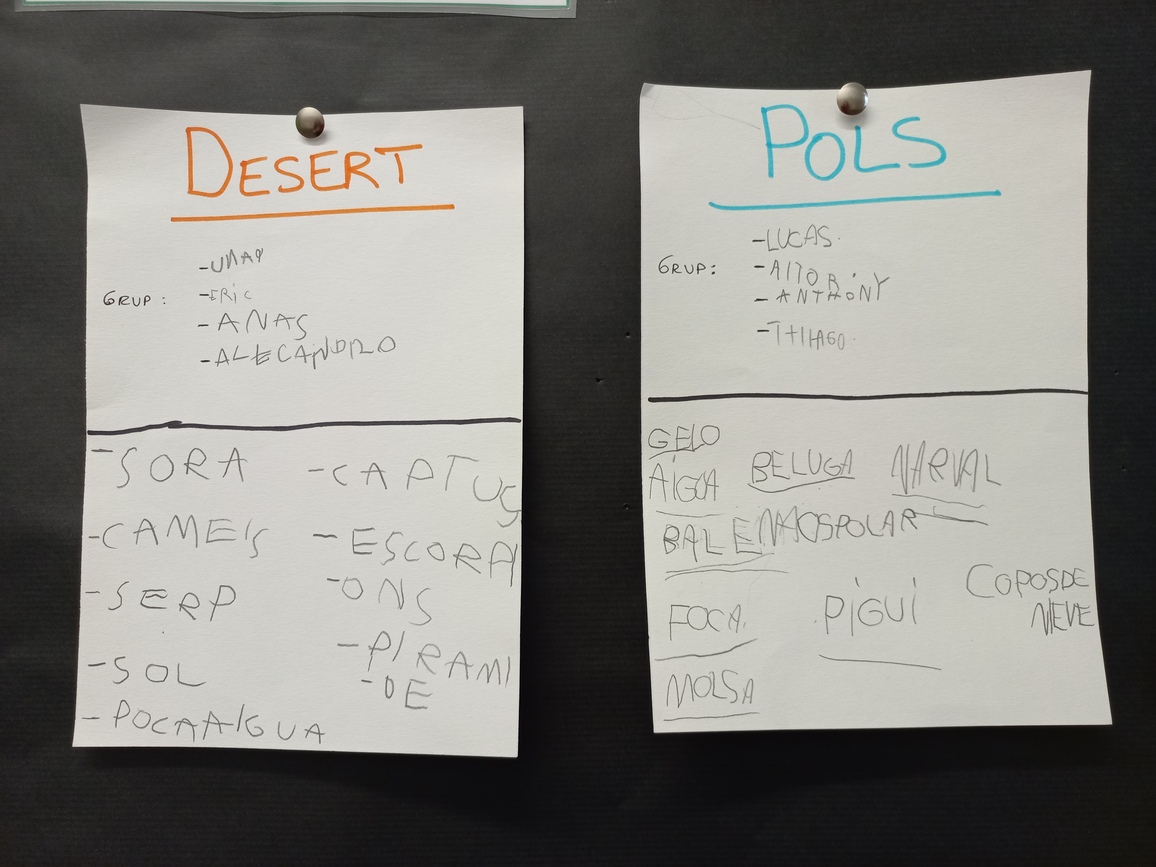 DESERT
GRUP:
-UMAR
-ERIC
-ANAS
-ALECANDRO
-SORA
-CAMEIS
-SERP
-SOL
-POCAAIGUA
-CAPTUS
-ESCORPI
-ONS
-PIRAMI
-DE
POLS
GRUP:
-LUCAS.
-AITOR.
-ANTHONY
-THIAGO.
GELO
AIGUA
BELUGA
NARVAL
BALENA
OSPOLAR
FOCA.
PIGUI
COPOSDE
NIEVE
MOLSA